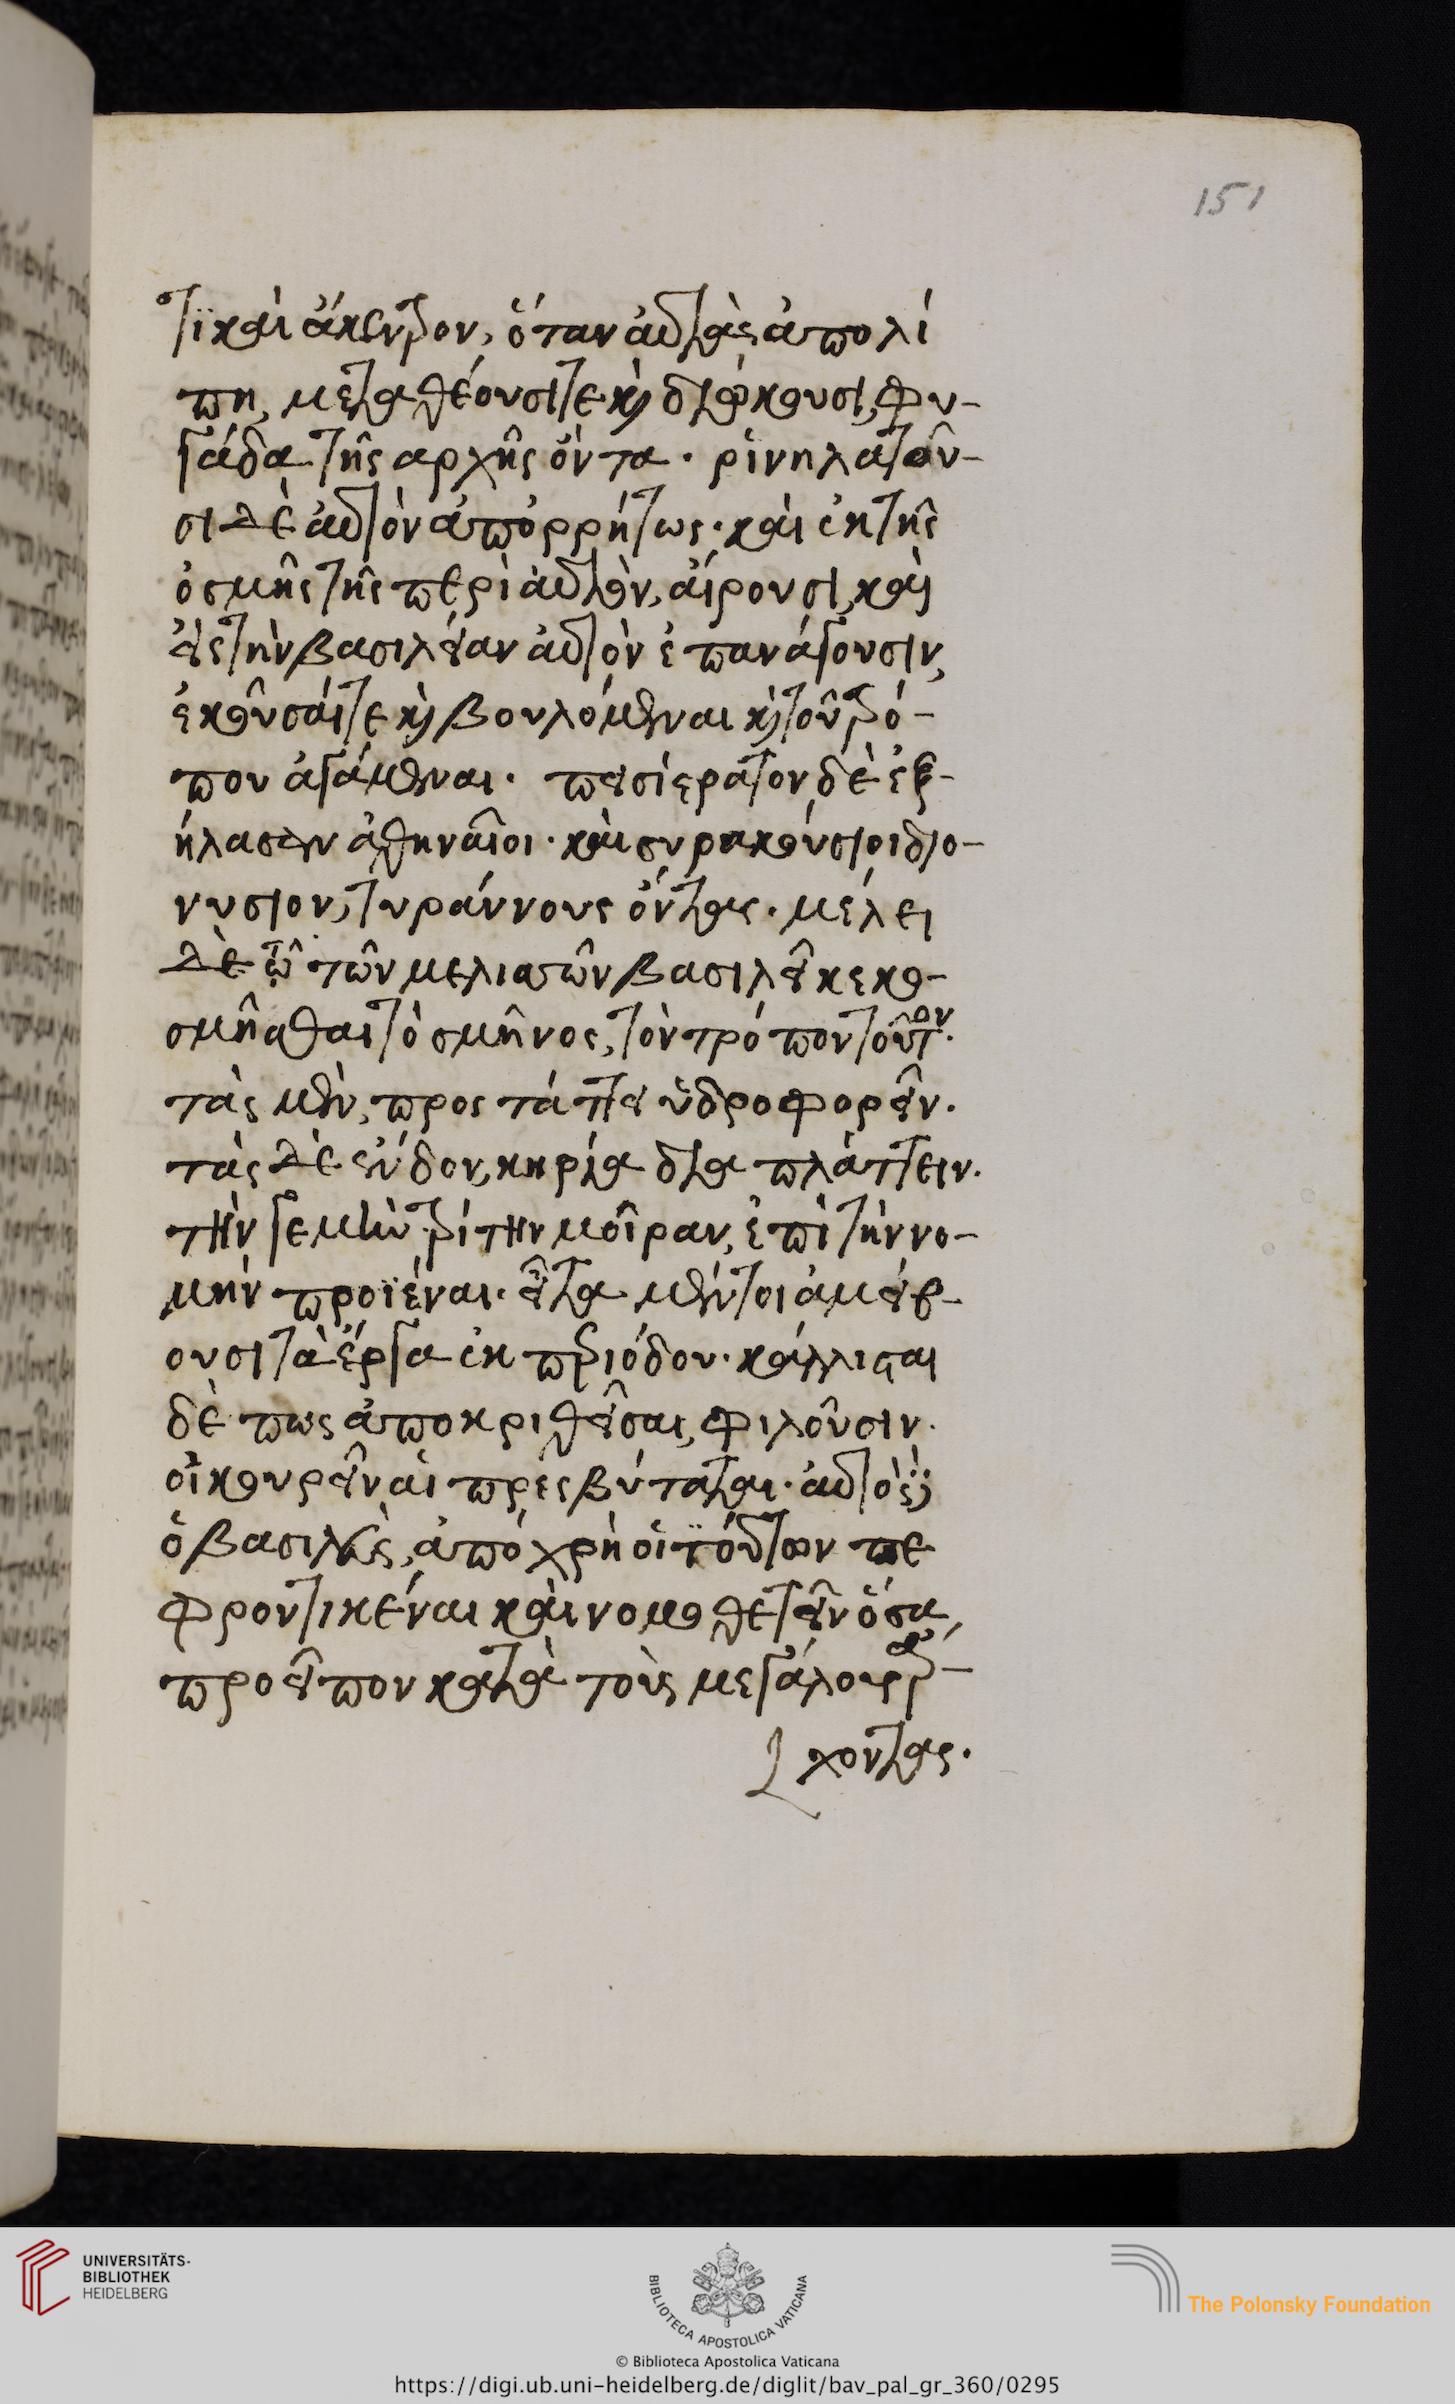 151
τι καὶ ἄκεντρον, ὅταν αὐτὰς ἀπολί
πῃ, μεταθέουσί τε κ διώκουσι, φυ-
γάδα τῆς αρχῆς ὄντα. ῥινηλατοῦν-
σι δὲ αὐτὸν ἀπορρήτως. καὶ ἐκ τῆς
ὀσμῆς τῆς περὶ αὐτὸν, αἵρουσι, καὶ
εἰς τὴν βασιλείαν αὐτὸν ἐπανάγουσιν,
ἑκοῦσαί τε κ βουλόμεναι κ τοῦ τρό-
που ἀγάμεναι. πεισίστρατον δὲ ἐξ-
ήλασαν ἀθηναῖοι. καὶ συρακούσιοι διο-
νυσιον, τυράννους ὄντας. μέλει
δὲ τῷ τῶν μελισσῶν βασιλεῖ κεκο-
σμῆσθαι τὸ σμῆνος, τὸν τρόπον τοῦτον.
τὰς μὲν, προστάττει ὑδροφορεῖν.
τὰς δὲ ἔνδον, κηρία διαπλάττειν.
τήν γε μὴν τρίτην μοῖραν, ἐπὶ τὴν νο-
μὴν προϊέναι. εἶτα μέντοι ἀμείβ-
ουσι τὰ ἔργα ἐκ περιόδου. κάλλισται
δέ πως ἀποκριθεῖσαι, φιλοῦσιν.
οἰκουρεῖν αἱ πρεσβύταται. αὐτὸς δὲ
ὁ βασιλεὺς, ἀπόχρη οἱ τούτων πε
φροντικέναι καὶ νομοθετεῖν ὅσα
προεῖπον κατὰ τοὺς μεγάλους ἄρ-
χοντας.
UNIVERSITÄTS-
BIBLIOTHEK
HEIDELBERG
BIBLIOTECA APOSTOLICA VATICANA
The Polonsky Foundation
© Biblioteca Apostolica Vaticana
https://digi.ub.uni-heidelberg.de/diglit/bav_pal_gr_360/0295